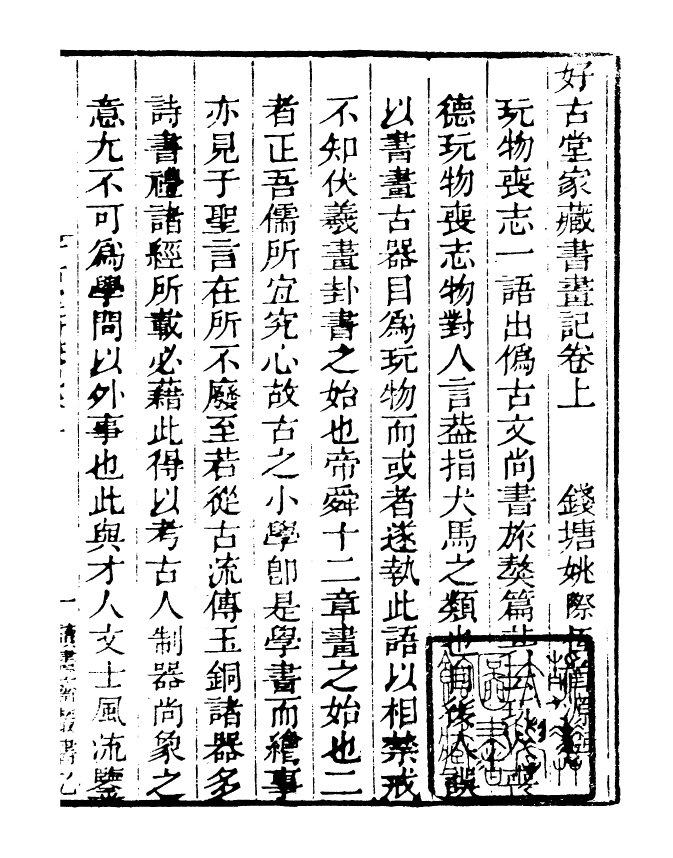 好古堂家藏書畫記卷上　錢塘姚際恆
玩物喪志一語出僞古文尚書旅獒篇其以玩人喪
德玩物喪志物對人言葢指犬馬之類也自後人誤
以書畫古器目爲玩物而或者遂執此語以相禁戒
不知伏羲畫卦書之始也帝舜十二章畫之始也二
者正吾儒所宜究心故古之小學卽是學書而繪事
亦見于聖言在所不廢至若從古流傳玉銅諸器多
詩書禮諸經所載必藉此得以考古人制器尚象之
意尤不可爲學問以外事也此與才人文士風流鑒
一　讀畫齋叢書